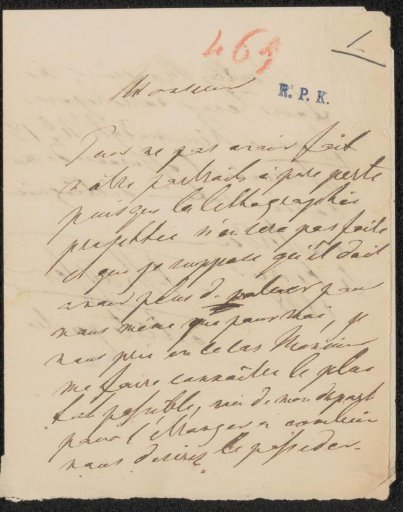 465
1.
Monsieur
R. P. K.
Pour ne pas avoir fait
votre portrait à pure perte
puisque la lithographie
projettée n'en sera pas faite
et que je suppose qu'il doit
avoir plus de valeur pour
vous même que pour moi, je
vous prie en ce cas Monsieur
me faire connaître le plus
tot possible, vu de mon départ
pour l'étranger a combien
vous desirez le posseder.